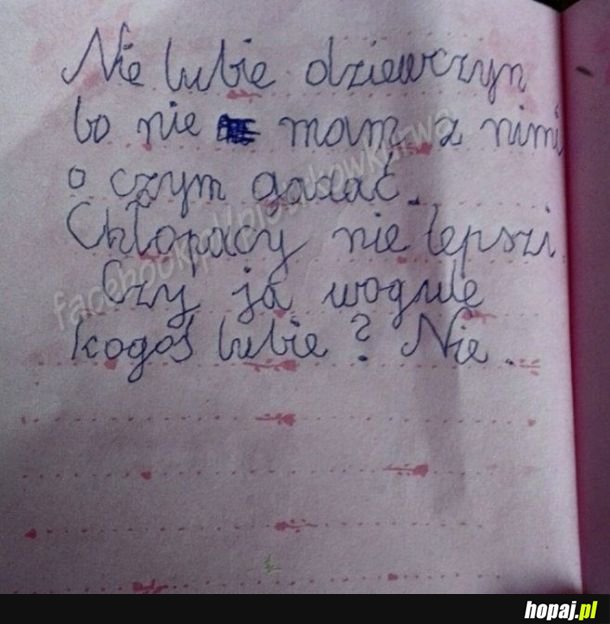 Nie lubię dziewczyn
bo nie mam z nimi
o czym gadać.
Chłopacy nie lepsi.
Czy ja wogule
kogoś lubię? Nie.
hopaj.pl